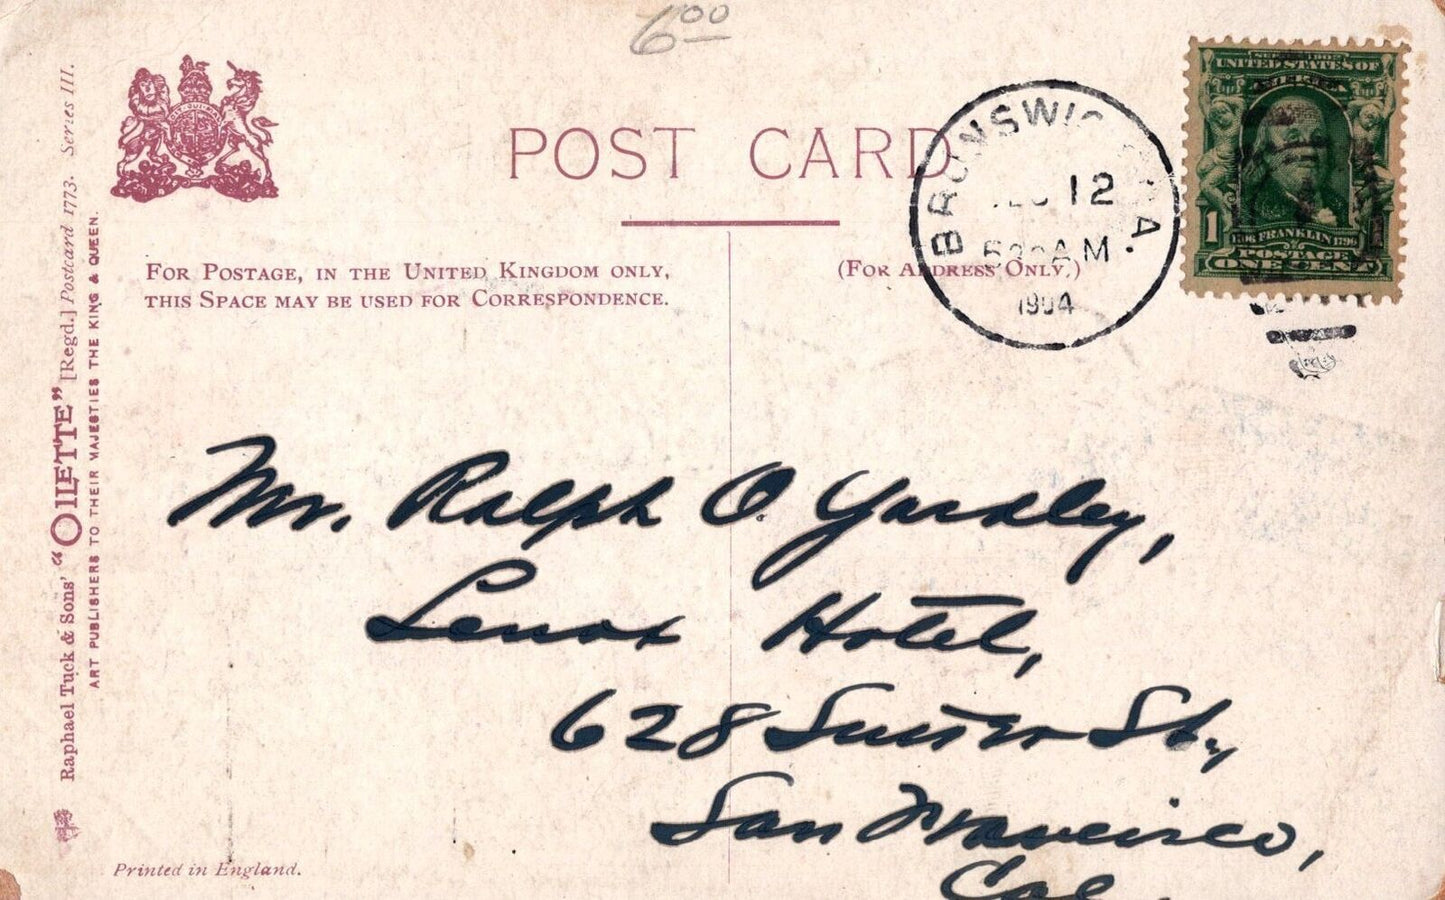 6⁰⁰
POST CARD
FOR POSTAGE, IN THE UNITED KINGDOM ONLY,
THIS SPACE MAY BE USED FOR CORRESPONDENCE.
(FOR ADDRESS ONLY.)
BRUNSWIC GA
12
A M.
1904
UNITED STATES OF
1706 FRANKLIN 1790
1 1
POSTAGE
ONE CENT
Raphael Tuck & Sons' "OILETTE" [Regd.] Postcard 1773. Series III.
ART PUBLISHERS TO THEIR MAJESTIES THE KING & QUEEN.
Mr. Ralph O. Yardley,
Lenox Hotel,
628 Sutter St.,
San Francisco,
Cal
Printed in England.